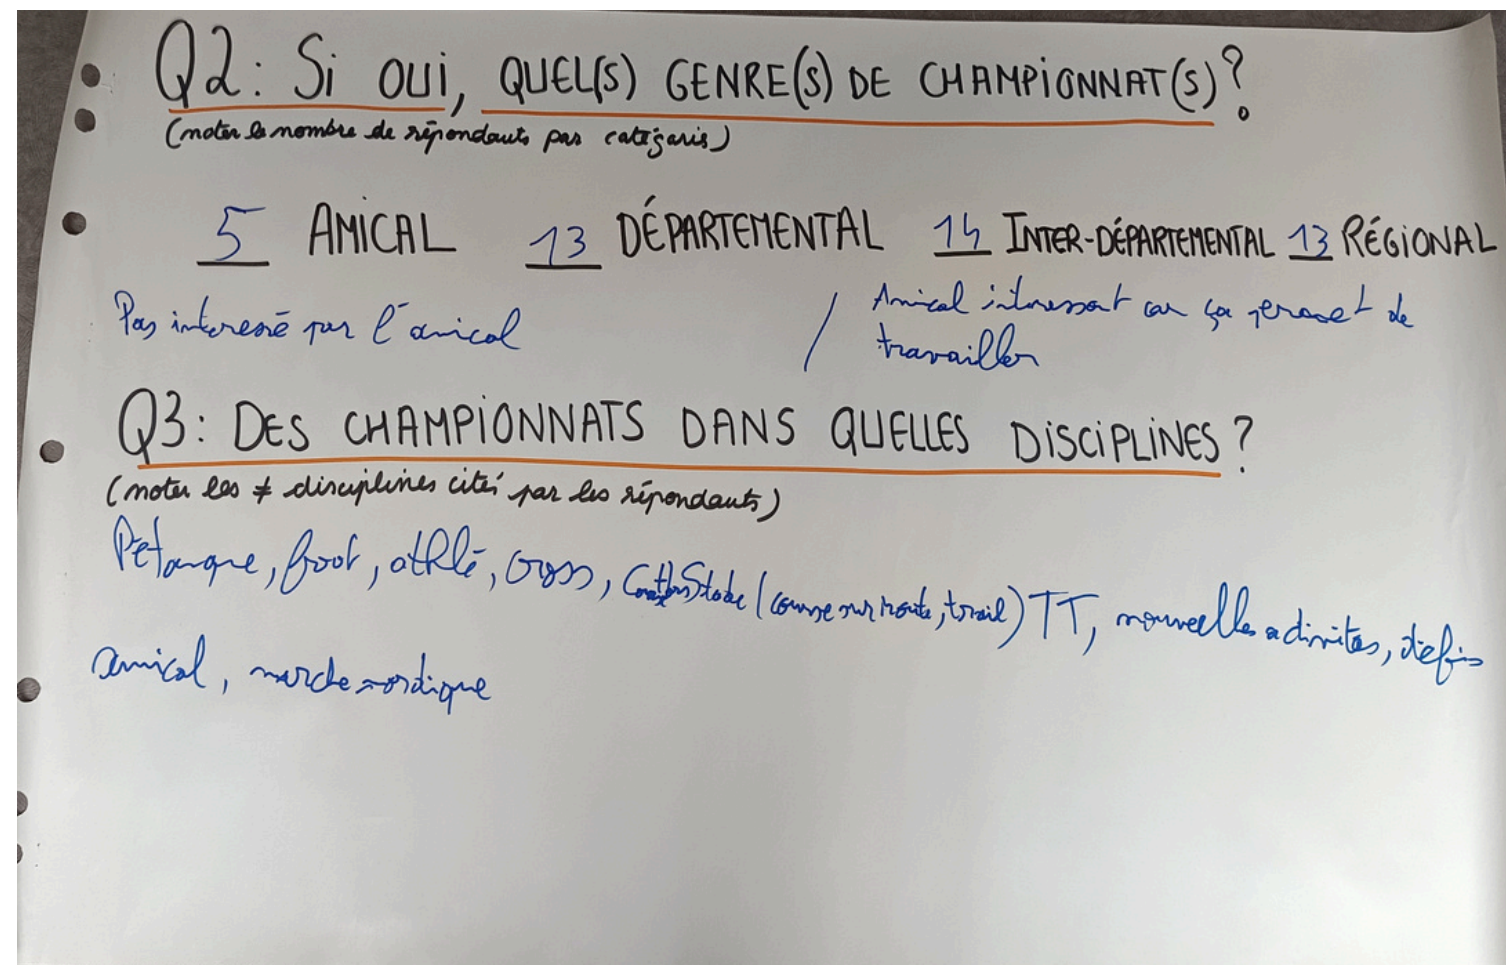 Q2: Si OUI, QUEL(S) GENRE(S) DE CHAMPIONNAT(S)?
(noter le nombre de répondants par catégories)
5 AMICAL 13 DÉPARTEMENTAL 14 INTER-DÉPARTEMENTAL 13 RÉGIONAL
Pas interessé par l'amical / Amical interessant car ça permet de
travailler
Q3: DES CHAMPIONNATS DANS QUELLES DISCIPLINES?
(noter les ≠ disciplines cités par les répondants)
Pétanque, foot, athlé, cross, Stade (course sur route, trail) TT, nouvelles activités, défis
amical, marche nordique